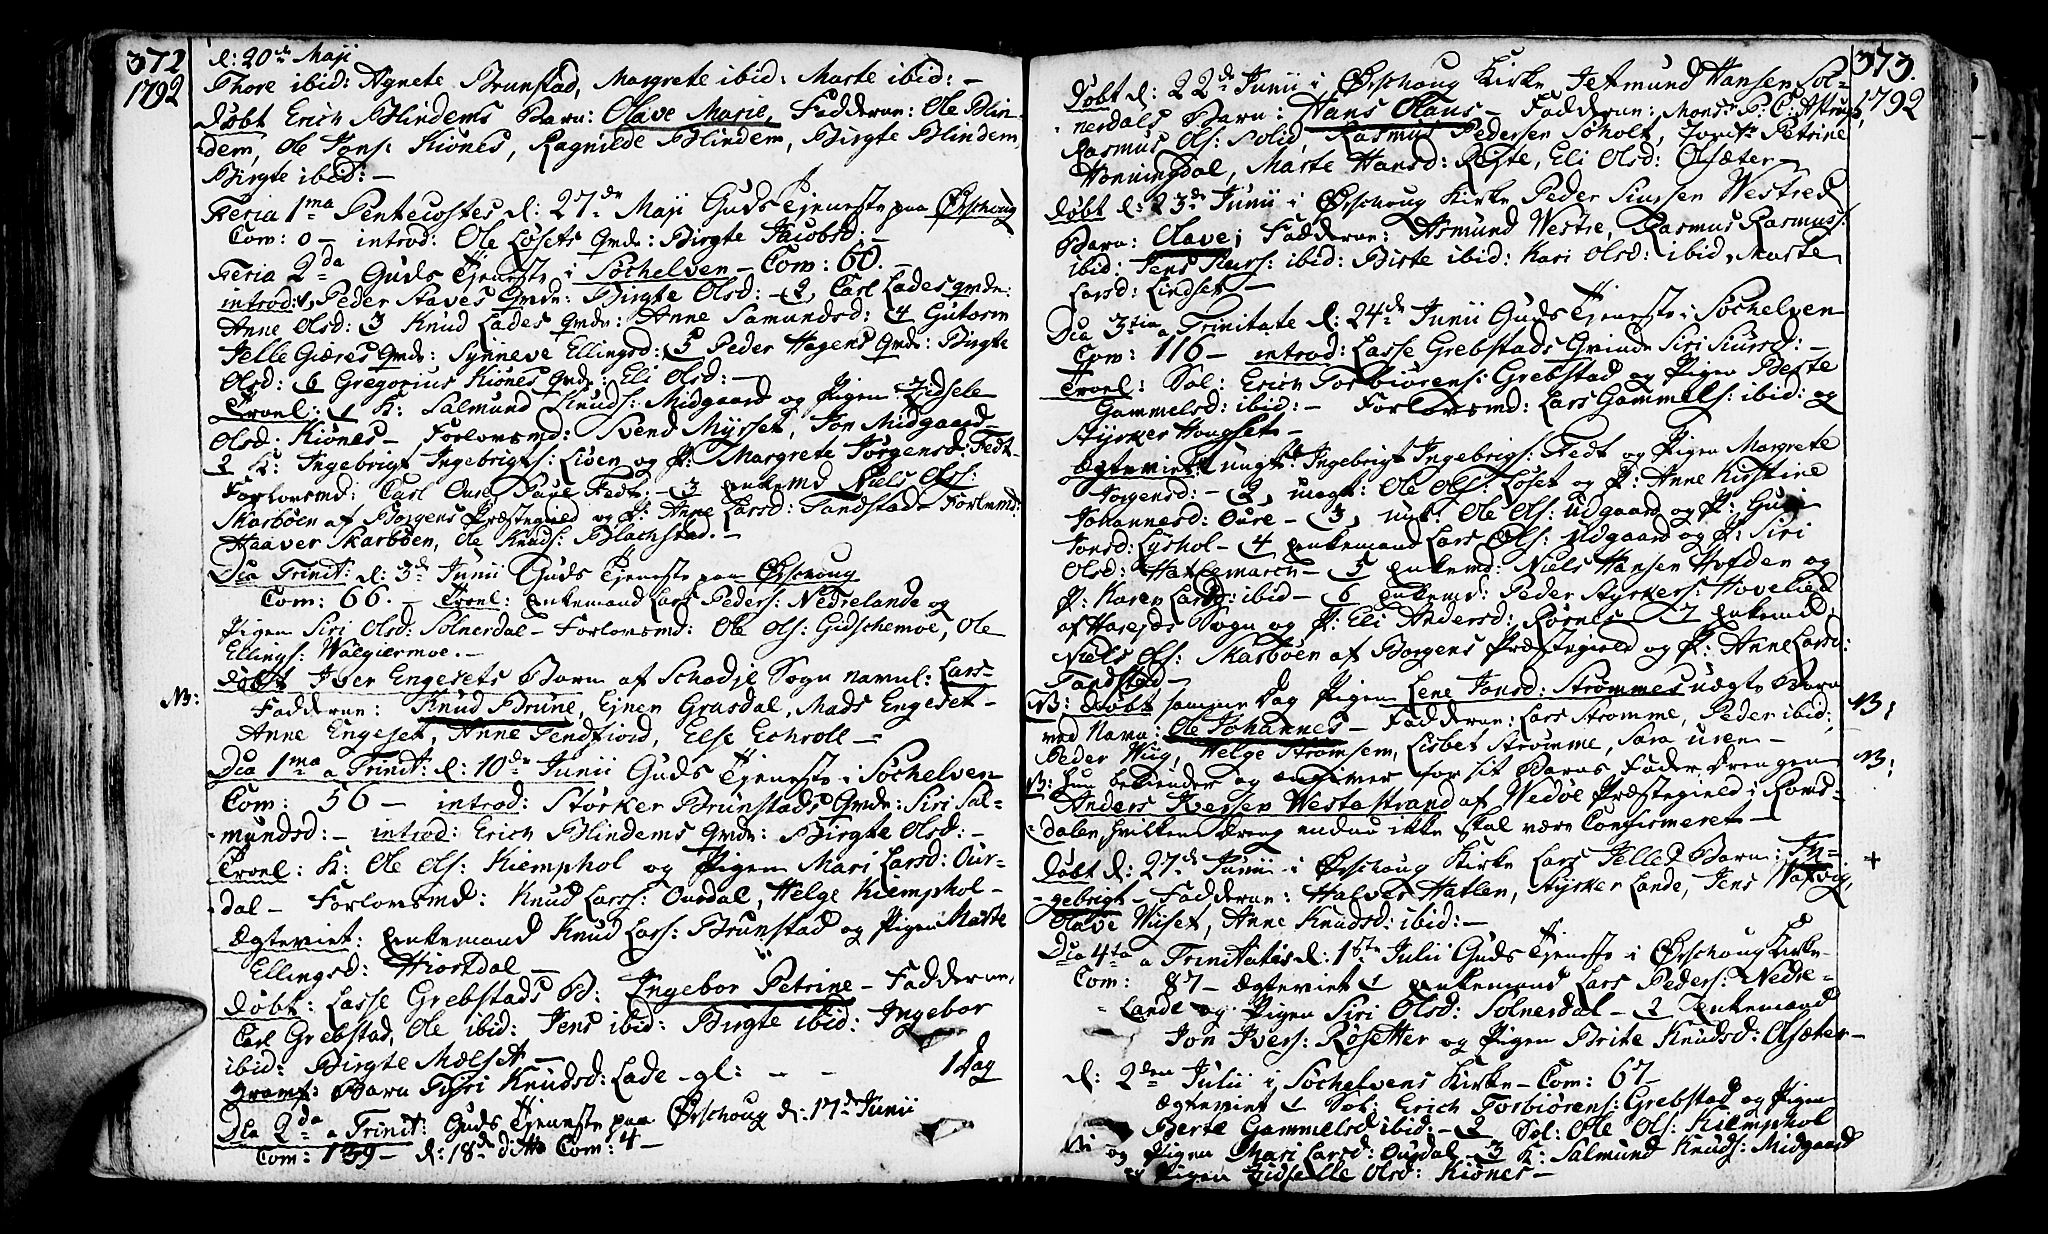 372
1792
d: 20de Maji
Thore ibid: Agnete Brunstad, Margrete ibid: Marte ibid: -
Døbt Erich Blindems Barn: Olave Marie, Fadderne: Ole Blin-
dem, Ole Jons: Kiønes, Ragnilde Blindem, Birgte Blindem,
Birgte ibid: -
Feria 1ma Pentecostes d: 27de Maji Guds Tjeneste paa Ørschoug
Com: 0 - introd: Ole Løsets Qmde: Birgte Jacobsd: -
Feria 2da Guds Tjeneste i Søchelven - Com: 60. -
introd: 1, Peder Staves Qmde: Birgte Olsd: - 2, Carl Lades Qmde:
Anne Olsd: 3 Knud Lades Qmde: Anne Samundsd: 4 Gutorm
Jelle Giæres Qmde: Synneve Ellingsd: 5 Peder Hagens Qmde: Birgte
Olsd: 6 Gregorius Kiønes Qmde: Eli Olsd: -
Troel: 1 K: Salmund Knuds: Midgaard og Pigen Zidsele
Olsd: Kiønes - Forlovsmd: Svend Myrset, Jon Midgaard -
2 K: Ingebrigt Ingebrigts: Liøen og P: Margrete Jørgensd: Fedt -
Forlovsmd: Carl Oure, Paul Fedt: - 3 Enkemd Niels Ols:
Skarbøen af Borgens Præstegield og P: Anne Larsd: Tandstad Forlovmd:
Haaver Skarbøen, Ole Knuds: Blachstad. -
Dca Trinit: d: 3de Junii Guds Tjeneste paa Ørschoug
Com: 66. - Troel: Enkemand Lars Peders: Nedrelande og
Pigen Siri Olsd: Solnerdal - Forlovsmd: Ole Ols: Gidschemoe, Ole
Ellings: Walgiermoe. -
NB:
Døbt Iver Engesets Barn af Schodje Sogn navnl: Lars -
Fadderne: Knud Brune, Ejnen Grasdal, Mads Engeset -
Anne Engeset, Anne Tendfiord, Else Echroll -
Dca 1ma a Trinit: d: 10de Junii Guds Tjeneste i Søchelven
Com: 56 - introd: Størker Brunstads Qmde: Siri Sal-
mundsd: - introd: Erich Blindems Qmde: Birgte Olsd: -
Troel: K: Ole Ols: Kiemphol og Pigen Mari Larsd: Our-
dal - Forlovsmd: Knud Larss: Ourdal, Helge Kiemphol -
Ægteviet: Enkemand Knud Lars: Brunstad og Pigen Marte
Ellingsd: Hiortdal -
Døbt: Lasse Grebstads B: Ingebor Petrine - Fadderne,
Carl Grebstad, Ole ibid: Jens ibid: Birgte ibid: Ingebor
ibid: Birgte Mælset -
Jramf: Barn Siri Knudsd: Lade - gl: - - 1 Dag
Dca 2da a Trinit: Guds Tjeneste paa Ørschoug d: 17de Junii
Com: 139 - d: 18de ditto Com: 4 -
373.
1792
Døbt d: 22de Junii i Ørschoug Kirke Jetmund Hansen Sol-
nerdals Barn: Hans Olaus - Fadderne: Monsr P: C: Astrup,
Rasmus Ols: Solid, Rasmus Pedersen Søholt, Jomfr Petrine
Honningdal, Marte Hansd: Riste, Eli Olsd: Olsæter -
Døbt d: 23de Junii i Ørschoug Kirke Peder Siursen Westred
Barn: Olave; Fadderne: Asmund Westre, Rasmus Rasmuss:
ibid: Jens Siurs: ibid: Birte ibid: Kari Olsd: ibid, Marte
Larsd: Lindset -
Dca 3tia a Trinitate d: 24de Junii Guds Tjeneste i Søchelven
Com: 116 - introd: Lasse Grebstads Qvinde Siri Siursd: -
Troel: Sol: Erich Torbiørens: Grebstad og Pigen Berte
Gammelsd: ibid: - Forlovsmd: Lars Gammels: ibid: og
Styrker Hougset -
Ægteviet: 1 ungk: Ingebrigt Ingebrigs: Fedt og Pigen Margrete
Jørgensd: - 2, ungk: Ole Ols: Løset og P: Anne Kirstine
Johannesd: Oure - 3, ungk: Ole Ols: Udgaard og P: Guri
Jonsd: Lyshol - 4 Enkemand Lars Ols: Udgaard og P: Siri
Olsd: Hatlemarch - 5 Enkemd: Niels Hansen Hofden og
P: Karen Larsd: ibid - 6 Enkemd: Peder Styrkers: Hovelied
af Hareids Sogn og P: Eli Andersd: Rørnes - 7 Enkemd:
Niels Ols: Skarbøen af Borgens Præstegield og P: Anne Larsd:
Tandstad -
NB: Døbt samme Dag Pigen Lene Jonsd: Strømmes uægte Barn NB;
ved Navn: Ole Johannes - Fadderne: Lars Strømme, Peder ibid,
Peder Wiig, Helge Strømsem, Lisbet Strømme, Sara uren -
B: Hun bekiender og angiver for sit Barns Fader Drengen NB:
Anders Iversen Westestrand af Wedøe Præstegield i Roms-
dalen, hvilken Dreng endnu ikke skal være Confirmeret -
Døbt d: 27de Junii i Ørschoug Kirke Lars Jelles Barn: In- +
gebrigt - Fadderne: Halver Hatlen, Styrker Lande, Jens Natvig,
Olave Wiset, Anne Knudsd: ibid: -
Dca 4ta a Trinitatis d: 1ste Julii Guds Tjeneste i Ørschoug Kirke
Com: 87 - Ægteviet 1 Enkemand Lars Peders: Nedre-
Lande og Pigen Siri Olsd: Solnerdal - 2 Enkemand
Jon Ivers: Røsetter og Pigen Brite Knudsd: Olsæter -
d: 2den Julii i Søchelvens Kirke - Com: 67
Ægteviet 1 Sol: Erich Torbiørens: Grebstad og Pigen
Berte Gammelsd ibid: - 2 Sol: Ole Ols: Kiemphol
og Pigen Mari Larsd: Ourdal - 3 K: Salmund Knuds: Midgaard
og Pigen Zidselle Olsd: Kiønes -